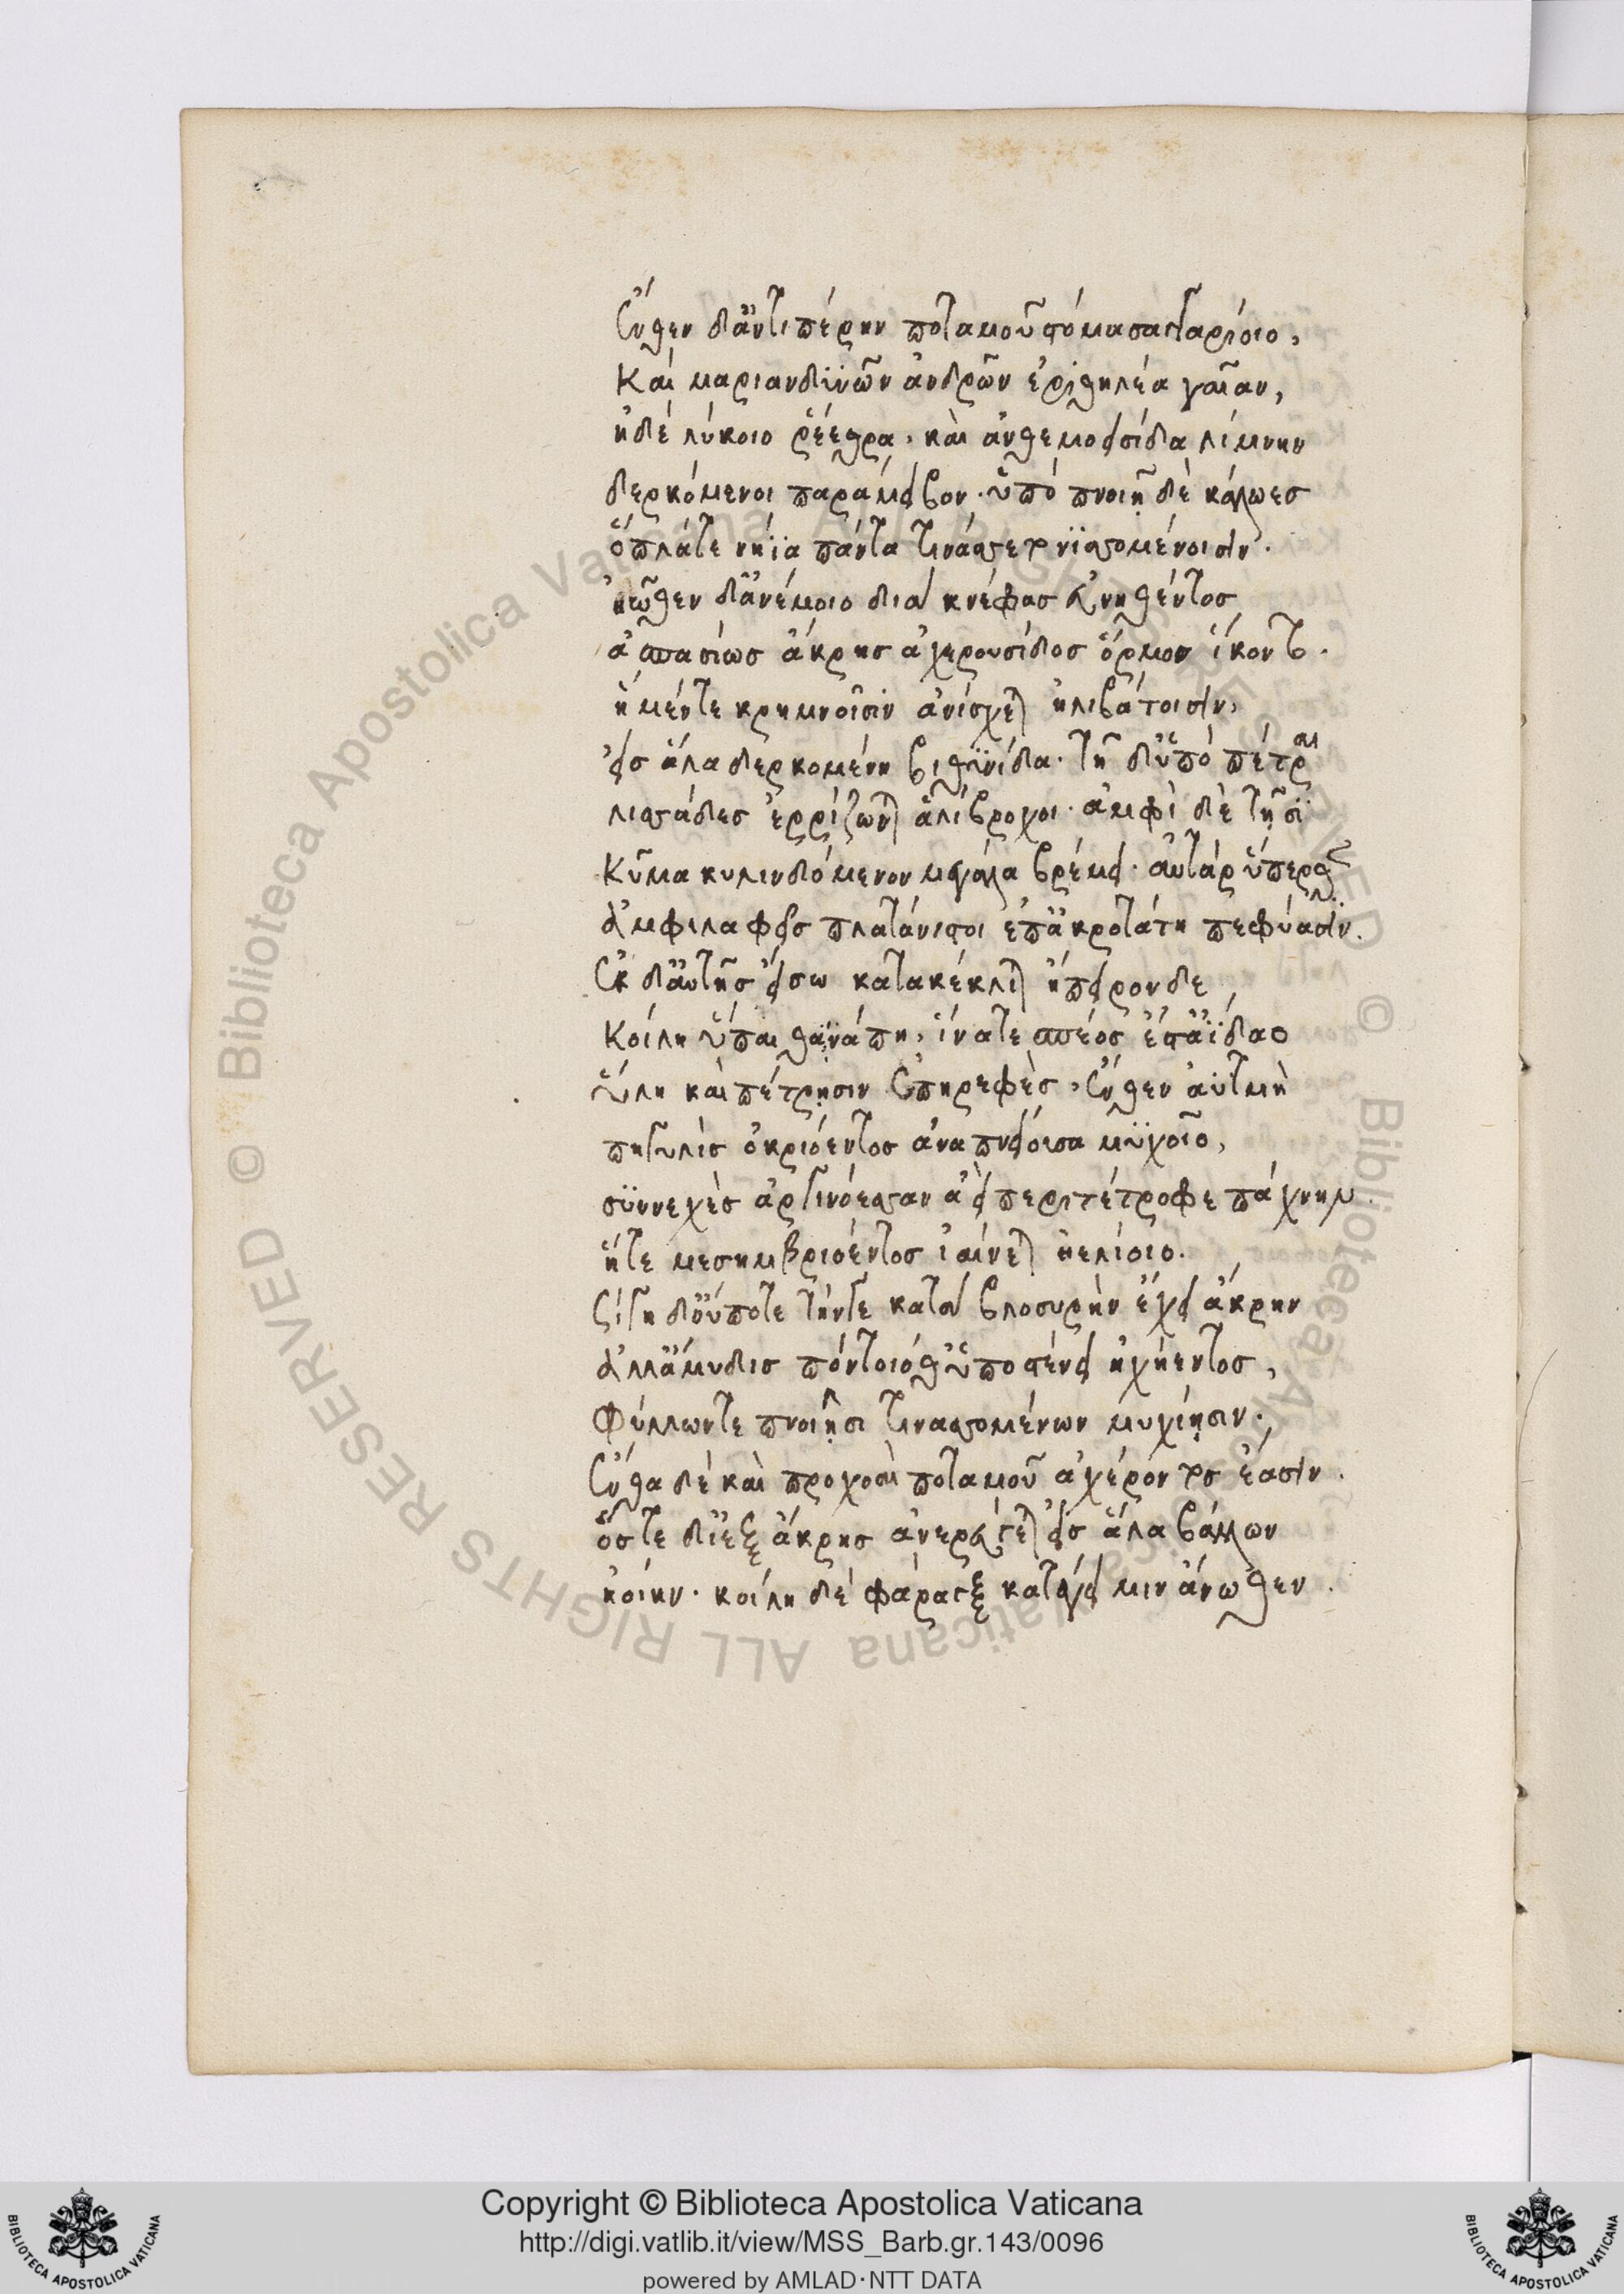 Ἔνθεν δ' ἀντιπέρην ποταμοῦ στόμα σαγγαρίοιο,
Καὶ μαριανδυνῶν ἀνδρῶν ἐριθηλέα γαῖαν,
ἠδὲ λύκοιο ῥέεθρα, καὶ ἀνθεμοεισίδα λίμνην
δερκόμενοι παράμειβον· ὑπὸ πνοιῇ δὲ κάλωες
ὅπλά τε νήϊα πάντα τινάσσετο νισσομένοισιν·
ἠῶθεν δ' ἀνέμοιο διὰ κνέφας εὐνηθέντος
ἀσπασίως ἄκρης ἀχερουσίδος ὅρμον ἵκοντο.
ἡ μέν τε κρημνοῖσιν ἀνίσχεται ἠλιβάτοισιν,
εἰς ἅλα δερκομένη βιθυνίδα· τῇ δ' ὑπὸ πέτραι
λισσάδες ἐρρίζωνται ἁλίβροχοι· ἀμφὶ δὲ τῇσι
Κῦμα κυλινδόμενον μεγάλα βρέμει· αὐτὰρ ὕπερθεν
ἀμφιλαφεῖς πλατάνιστοι ἐπ' ἀκροτάτῃ πεφύασιν.
Ἐκ δ' αὐτῆς εἴσω κατακέκλιται ἤπειρον δε
Κοίλη ὕπαιθα νάπη, ἵνα τε σπέος ἔστ' ἀΐδαο
ὕλῃ καὶ πέτρῃσιν ἐπηρεφὲς, ἔνθεν ἀϋτμὴ
πηγυλὶς ὀκριόεντος ἀναπνείουσα μυχοῖο,
συννεχὲς ἀργινόεσσαν ἀεὶ περιτέτροφε πάχνην
ἥ τε μεσημβριόεντος ἰαίνεται ἠελίοιο.
Σιγὴ δ' οὔποτε τήνγε κατὰ βλοσυρὴν ἔχει ἄκρην
ἀλλ' ἄμυδις πόντοιό θ' ὑποστένει ἠχήεντος,
Φύλλων τε πνοιῇσι τινασσομένων μυχίῃσιν·
Ἔνθα δὲ καὶ προχοαὶ ποταμοῦ ἀχέροντος ἔασιν.
ὅς τε διὲξ ἄκρης ἀνερεύγεται εἰς ἅλα βάλλων
ἠοίην· κοίλη δὲ φάραγξ κατάγει μιν ἄνωθεν.
Copyright © Biblioteca Apostolica Vaticana
http://digi.vatlib.it/view/MSS_Barb.gr.143/0096
powered by AMLAD·NTT DATA